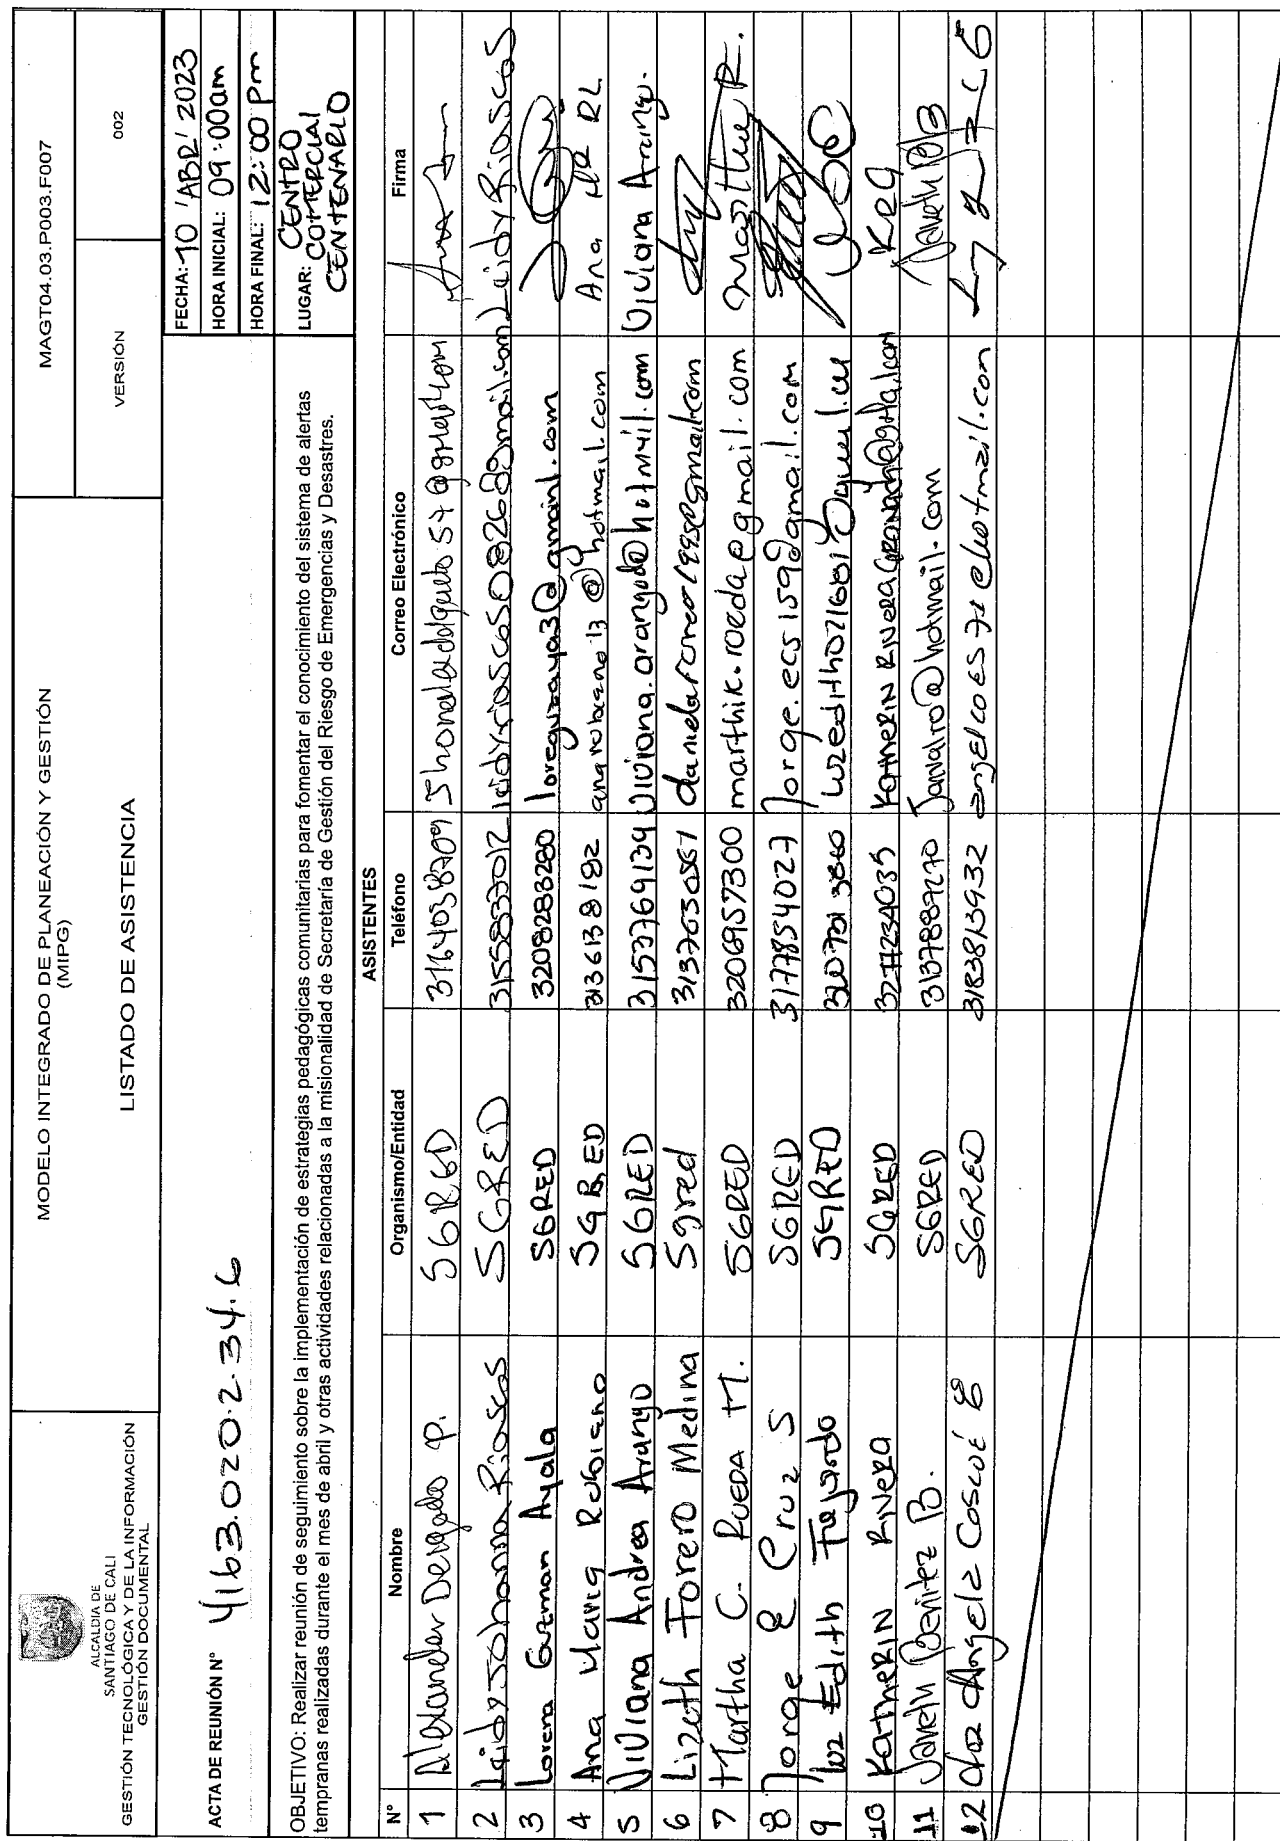 ALCALDIA DE
SANTIAGO DE CALI
GESTIÓN TECNOLÓGICA Y DE LA INFORMACIÓN
GESTIÓN DOCUMENTAL
MODELO INTEGRADO DE PLANEACIÓN Y GESTIÓN
(MIPG)
LISTADO DE ASISTENCIA
MAGT04.03.P003.F007
VERSIÓN 002
ACTA DE REUNIÓN N° 4163.020.2.34.6
FECHA: 10 ABR 2023
HORA INICIAL: 09:00am
HORA FINAL: 12:00 pm
LUGAR: CENTRO COMERCIAL CENTENARIO
OBJETIVO: Realizar reunión de seguimiento sobre la implementación de estrategias pedagógicas comunitarias para fomentar el conocimiento del sistema de alertas
tempranas realizadas durante el mes de abril y otras actividades relacionadas a la misionalidad de Secretaría de Gestión del Riesgo de Emergencias y Desastres.
ASISTENTES
N° Nombre Organismo/Entidad Teléfono Correo Electrónico Firma
1 Alexander Delgado P. SGRED 3164038709
2 Leidy Johanna Riascos SGRED 3155833012 Leidy Riascos
3 Lorena Guzman Ayala SGRED 3208283280 loreguzaya3@gmainl.com
4 Ana Maria Robiano SGRED 3136138182 Ana Ma RL
5 Viviana Andrea Arango SGRED 3153769139 viviana.arango@hotmail.com Viviana Arango.
6 Lizeth Forero Medina Sgred 3137630567
7 Martha C. Rueda M. SGRED 3206957300 marthik.roeda@gmail.com Martha R.
8 Jorge E Cruz S SGRED 3177854027 Jorge.ecs159@gmail.com
9 Luz Edith Fajardo SGRED
10 Katherin Rivera SGRED KRG
11 Janeth Benitez B. SGRED 3137887270
12 Luz Angela Coscué E SGRED 3183813932 angelcoes71@hotmail.com